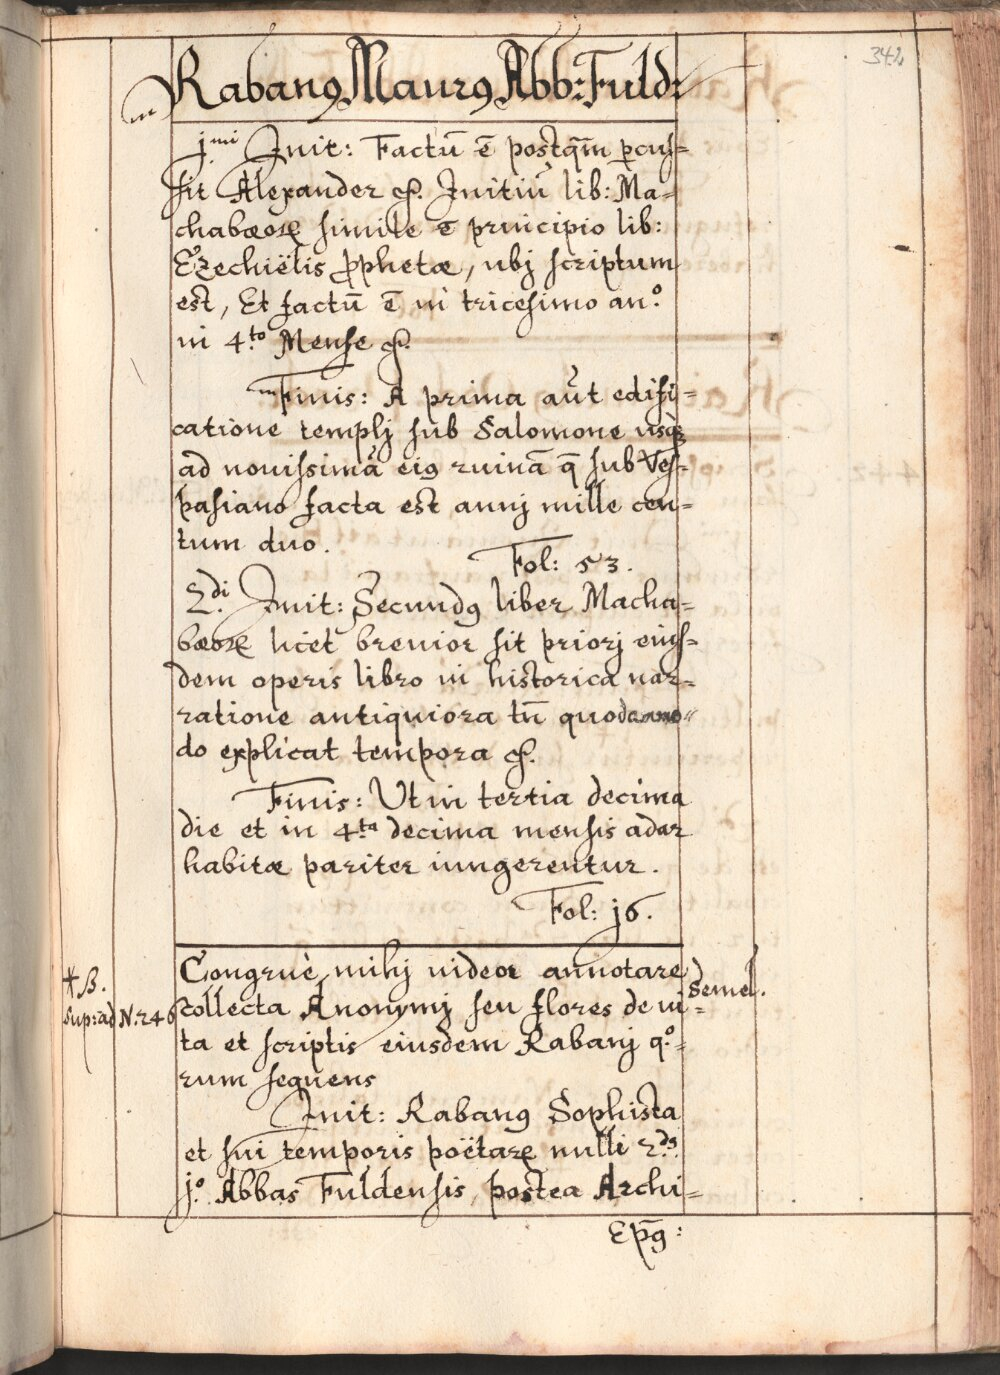 342
Rabanꝰ Maurꝰ Abb: Fuld:
j.mi Init: Factū ē postq̄m ꝑcus=
sit Alexander &. Initiū lib: Ma=
chabæoꝝ simile ē principio lib:
Ezechiëlis ꝓphetæ, ubj scriptum
est, Et factū ē in tricesimo an.o
in 4.to Mense &.
Finis: A prima aut edifi=
catione templj sub Salomone usqꝫ
ad nouissimā eiꝰ ruinā q̄ sub Ves=
pasiano facta est annj mille cen=
tum duo.
Fol: 53.
2.di Init: Secundꝰ liber Macha=
bæoꝝ licet breuior sit priorj eius=
dem operis libro in historica nar=
ratione antiquiora tn̄ quodammo=
do explicat tempora &.
Finis: Ut in tertia decima
die et in 4.ta decima mensis adar
habitæ pariter iungerentur.
Fol: j6.
Congruè mihj uideor annotare Semel.
*B.
Sup: ad N. 246 collecta Anonymj seu flores de ui=
ta et scriptis eiusdem Rabanj q.o=
rum sequens
Init: Rabanꝰ Sophista
et sui temporis poëtaꝝ nulli 2.ds
j.o Abbas Fuldensis, postea Archi=
Ep̄ꝰ: